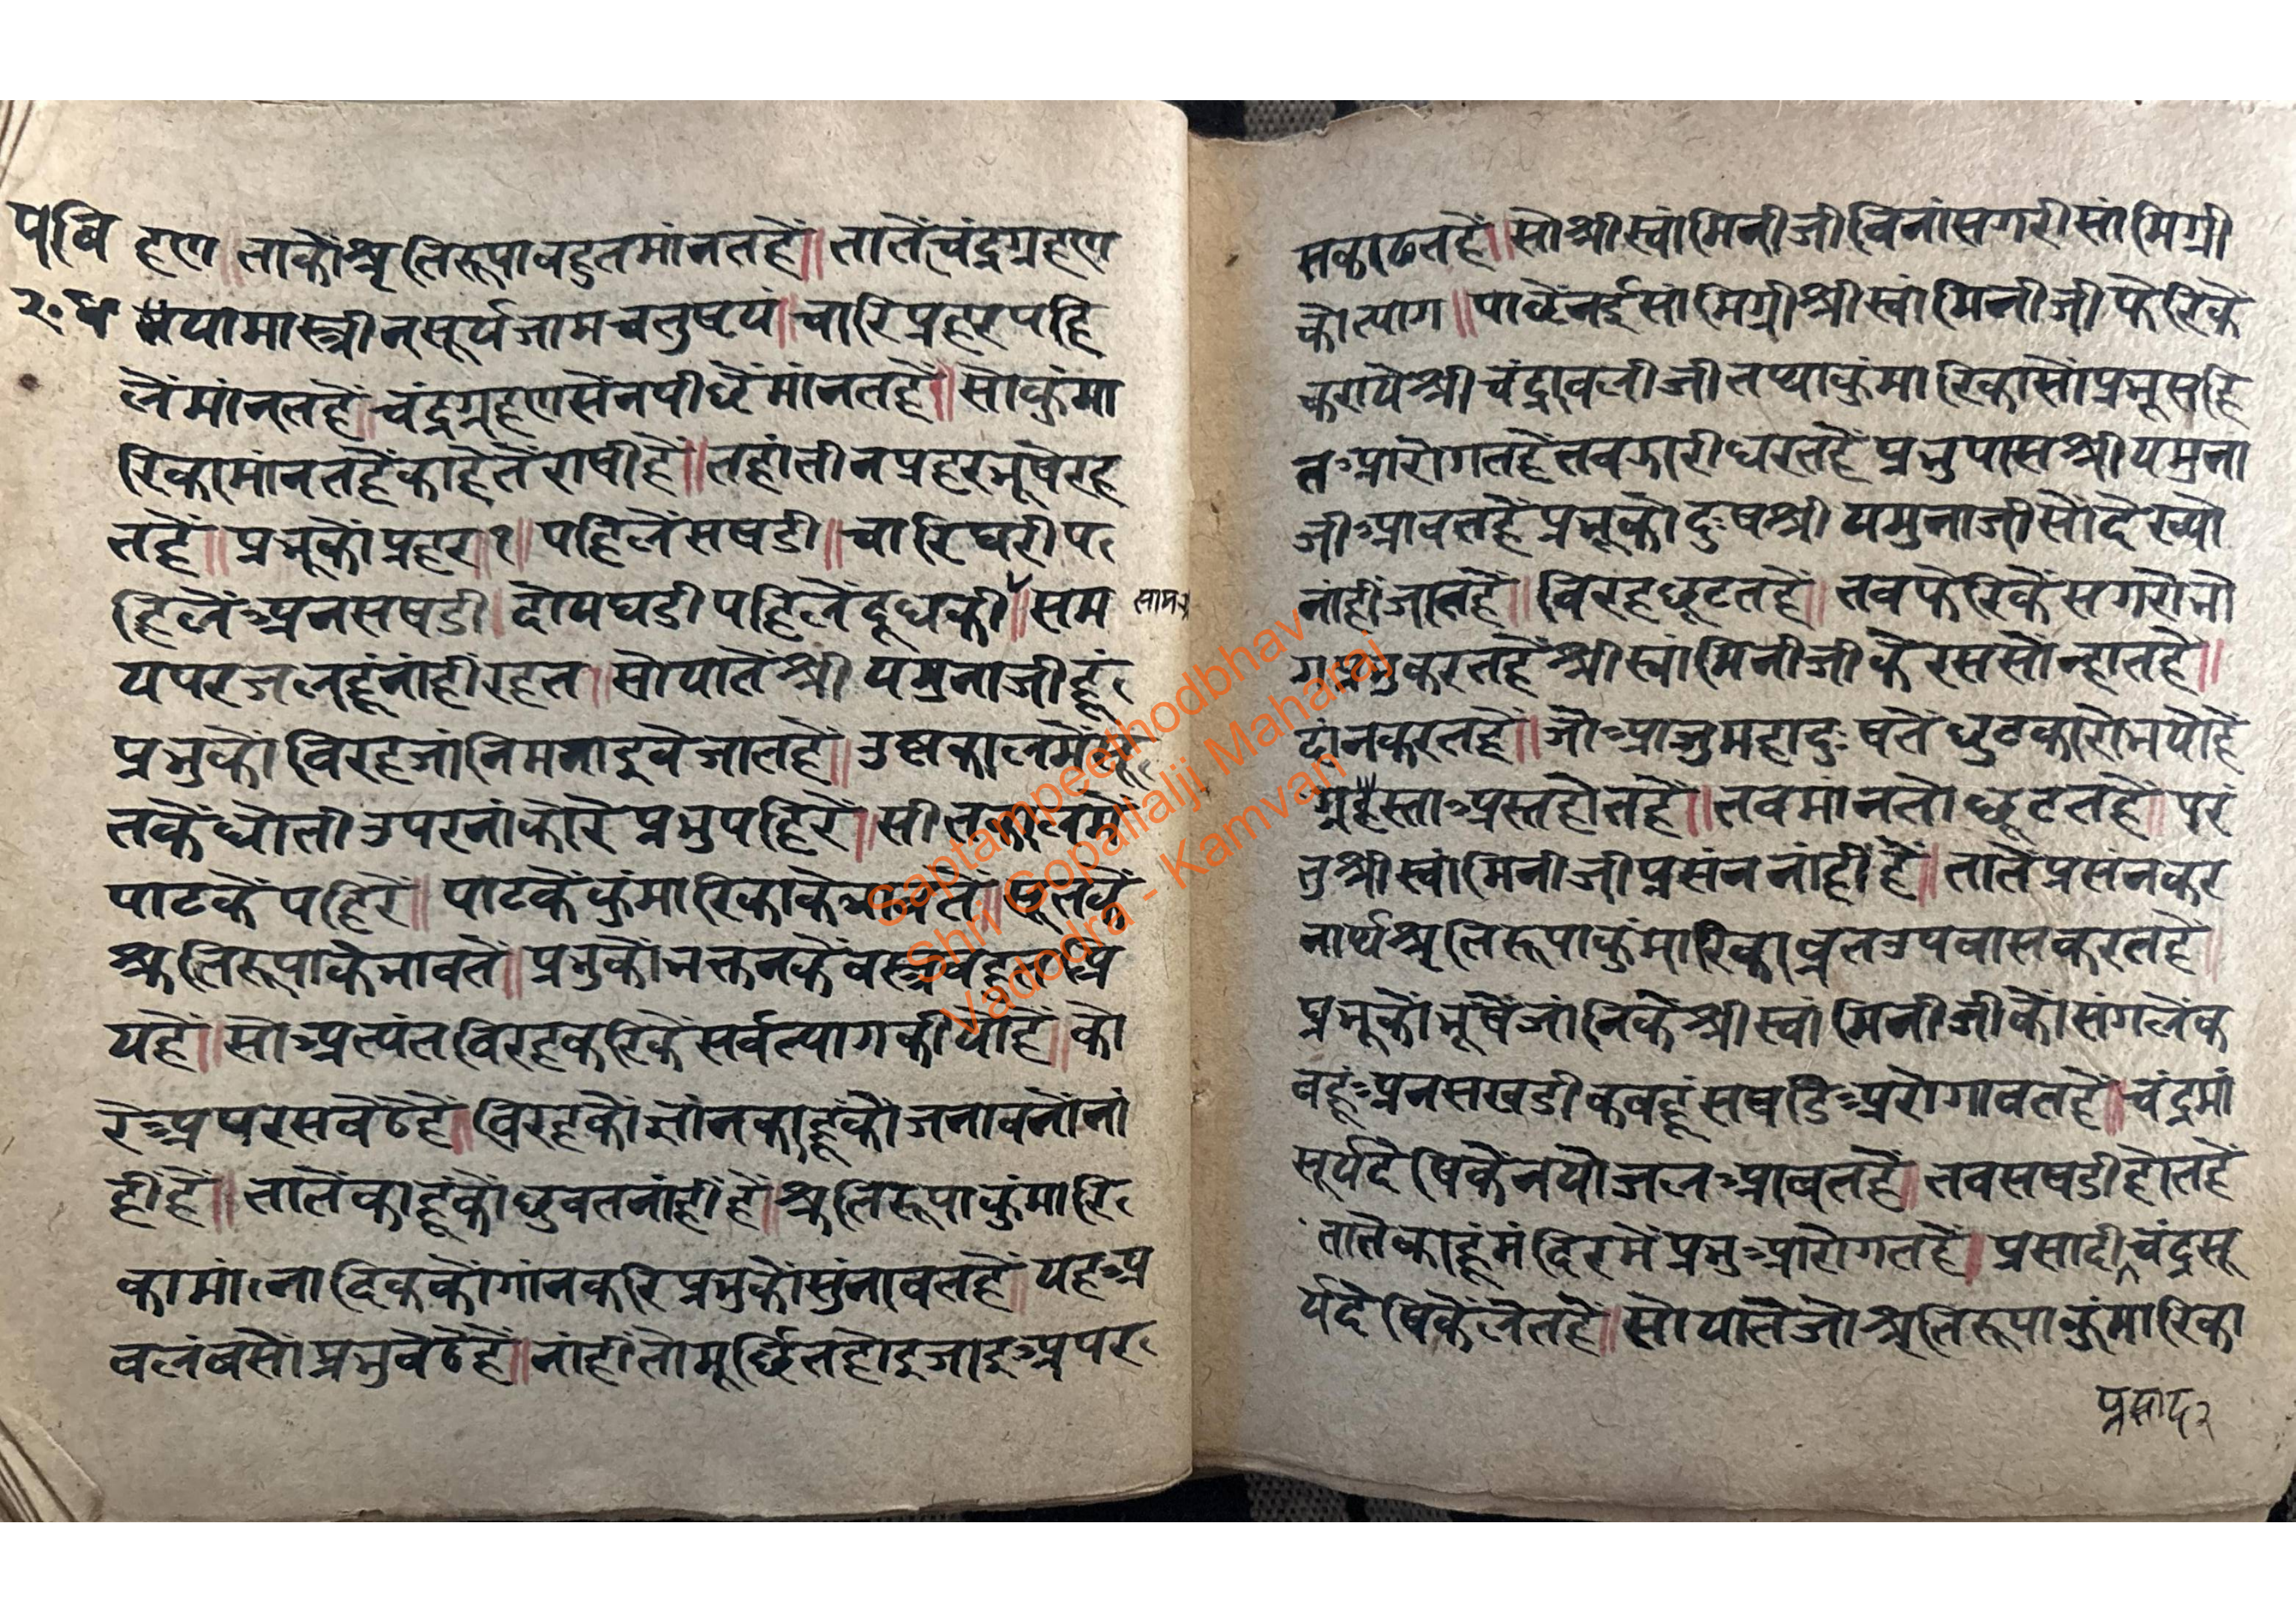 पुवि
२०४
हण॥ताकोंश्रृतिरूपाबहुतमांनतहैं॥तातेंचंद्रग्रहण
त्रयामास्त्रीनसूर्यजामचतुष्टयं॥चारिप्रहरपहि
लेंमांनतहैं॥चंद्रग्रहणसेंनपीछेंमांनतहैं॥सोकुंमा
रिकामांनतहैंकाहेतेंराषीहै॥तहांतीनप्रहरभूषेरह
तहैं॥प्रभूकोंप्रहर॥१॥पहिलेंसषडी॥चारिघरीप
हिलेंअनसषडी।दोयघडीपहिलेंदूधकी॥सम
सामग्री
यपरजलहूंनांहींरहत॥सोयातेंश्रीयमुनाजीहूं
प्रभुकोंविरहजांनिमनाइवेजातहैं॥उष्णकालमेंसू
तकेंधोतीउपरनांकोरेप्रभुपहिरें॥सीतकालमें
पाटकेंपहिरें॥पाटकेंकुंमारिकाकेभावतें॥सूतकें
श्रुतिरूपाकेभावतें॥प्रभुकोंभक्तनकेंवस्त्रबहुतप्रि
यहैं॥सोअत्यंतविरहकरिकेंसर्वत्यागकीयोहैं॥को
रेअपरसबेठेहैं॥विरहकोंग्यांनकाहूंकोंजनावनोंनां
हींहैं॥तातेंकाहूंकोंछुवतनांहींहैं॥श्रुतिरूपाकुंमारि
कामांनादिककोंगांनकरिप्रभुकोंसुंनावतहैं॥यहअ
वलंबसोंप्रभुबेठेहैं॥नांहींतोमूर्छितहोइजाइअपर
सकाढतहैं॥सोश्रीस्वांमिनीजीविनांसगरीसांमिग्री
कोत्याग॥पाछेंनईसांमिग्रीश्रीस्वांमिनीजीफेरिकें
करायेश्रीचंद्रावलीजीतथाकुंमारिकासोंप्रभूसहि
तआरोगतहैंतबझारीधरतहैंप्रभुपासश्रीयमुना
जीआवतहैंप्रभूकोदुःषश्रीयमुनाजीसोंदेख्यो
नांहींजातहैं॥विरहछूटतहैं॥तबफेरिकेंसगरोभो
गप्रभुकरतहैंश्रीस्वांमिनीजीकेरससोंन्हातहैं॥
दांनकरतहैं॥जोआजुमहादुःषतेंछुटकारोभयोहैं
ग्रहैस्ताअस्तहोतहैं॥तबमांनतोछूटतहैं॥परं
तुश्रीस्वांमिनीजीप्रसंननांहींहैं॥तातेंप्रसंनकर
नार्थश्रृतिरूपाकुंमारिकाव्रतउपवासकरतहैं॥
प्रभूकोंभूषेंजांनिकेंश्रीस्वांमिनीजीकोंसंगलेंक
बहूंअनसखडीकबहूंसषडिअरोगावतहैं॥चंद्रमां
सूर्यदेषिकेंनयोजलआवतहैं॥तबसषडीहोतहैं
तातेंकाहूंमंदिरमेंप्रभुआरोगतहैं॥प्रसादीचंद्रसू
र्यदेषिकेंलेतहैं॥सोयातेंजोश्रृतिरूपाकुंमारिका
प्रसाद२
Saptampeethodbhav
Shri Gopallalji Maharaj
Vadodra - Kamvan